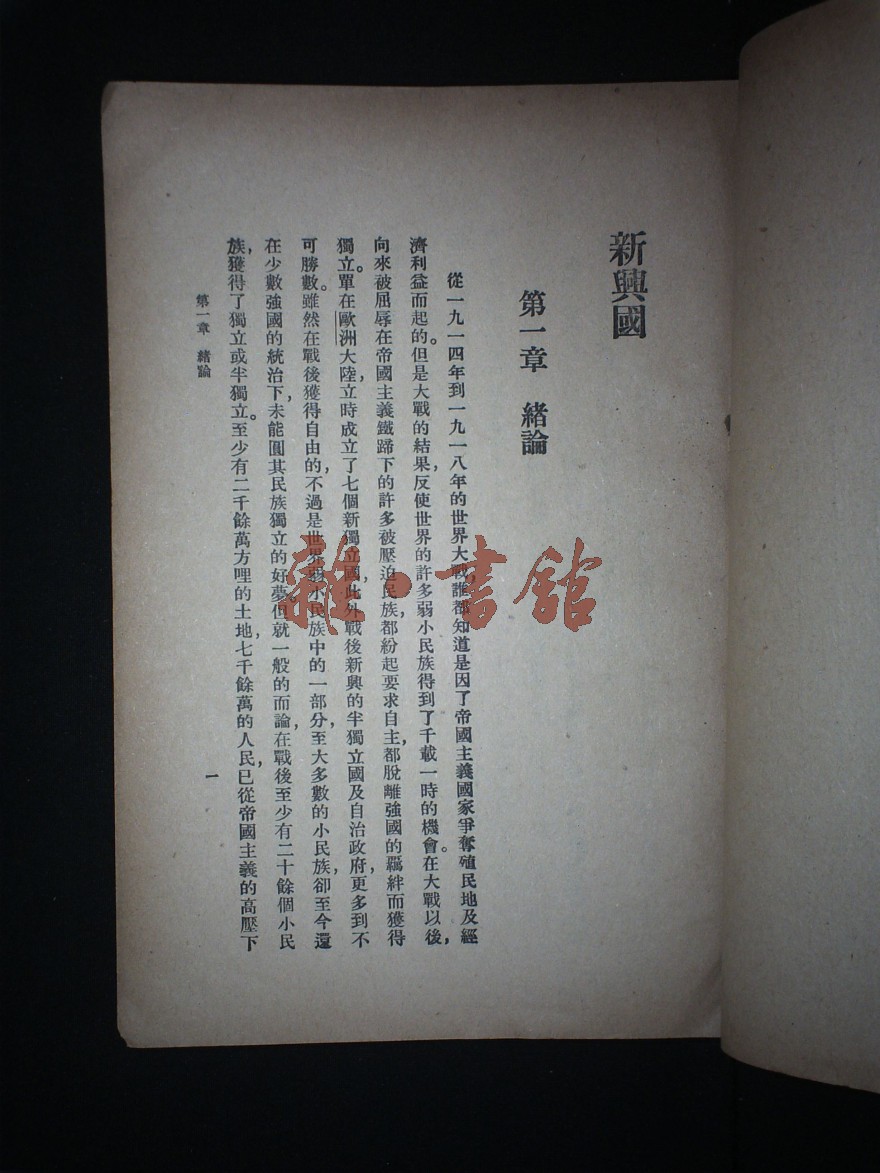 新興國
第一章　緒論
從一九一四年到一九一八年的世界大戰，誰都知道是因了帝國主義國家爭奪殖民地及經
濟利益而起的。但是大戰的結果，反使世界的許多弱小民族得到了千載一時的機會。在大戰以後，
向來被屈辱在帝國主義鐵蹄下的許多被壓迫民族，都紛起要求自主，都脫離強國的羈絆而獲得
獨立。單在歐洲大陸立時成立了七個新獨立國，此外戰後新興的半獨立國及自治政府，更多到不
可勝數。雖然在戰後獲得自由的，不過是世界弱小民族中的一部分，至大多數的小民族，卻至今還
在少數強國的統治下，未能圓其民族獨立的好夢。但就一般的而論，在戰後至少有二十餘個小民
族，獲得了獨立或半獨立。至少有二千餘萬方哩的土地，七千餘萬的人民，已從帝國主義的高壓下
第一章　緒論
一
雜·書館